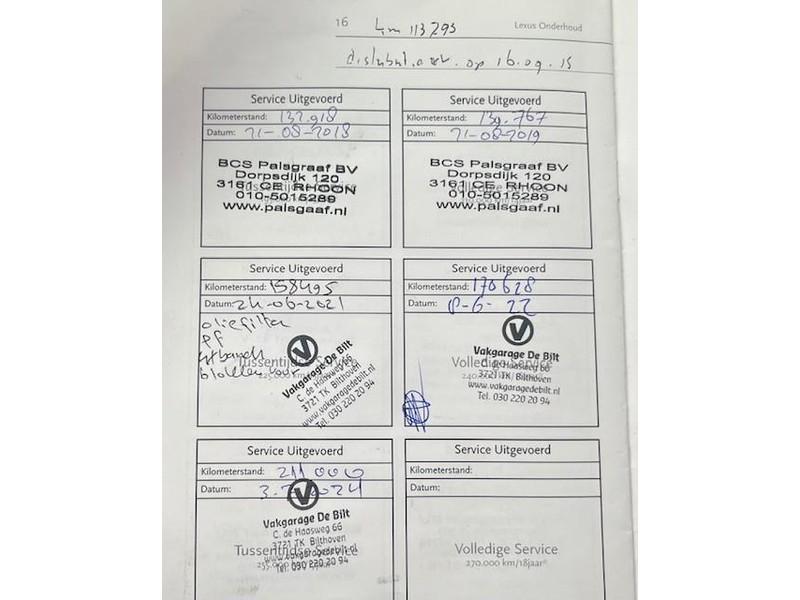 16
Km 113293
Lexus Onderhoud
op 16.09.15
Service Uitgevoerd
Kilometerstand: 132.918
Datum: 21-08-2018
BCS Palsgraaf BV
Dorpsdijk 120
3161 CE RHOON
010-5015289
www.palsgaaf.nl
Service Uitgevoerd
Kilometerstand: 139.767
Datum: 21-08-2019
BCS Palsgraaf BV
Dorpsdijk 120
3161 CE RHOON
010-5015289
www.palsgaaf.nl
Service Uitgevoerd
Kilometerstand: 158495
Datum: 24-06-2021
oliefilter
Tussentijdse Service
Vakgarage De Bilt
C. de Haasweg 66
3721 TK Bilthoven
www.vakgaragedebilt.nl
Tel. 030 220 20 94
Service Uitgevoerd
Kilometerstand: 170628
Datum: 8-6-22
Volledige Service
Vakgarage De Bilt
C. de Haasweg 66
3721 TK Bilthoven
www.vakgaragedebilt.nl
Tel. 030 220 20 94
Service Uitgevoerd
Kilometerstand: 211000
Datum:
Vakgarage De Bilt
C. de Haasweg 66
3721 TK Bilthoven
Tussentijdse Service
www.vakgaragedebilt.nl
Tel. 030 220 20 94
Service Uitgevoerd
Kilometerstand:
Datum:
Volledige Service
270.000 km/18jaar